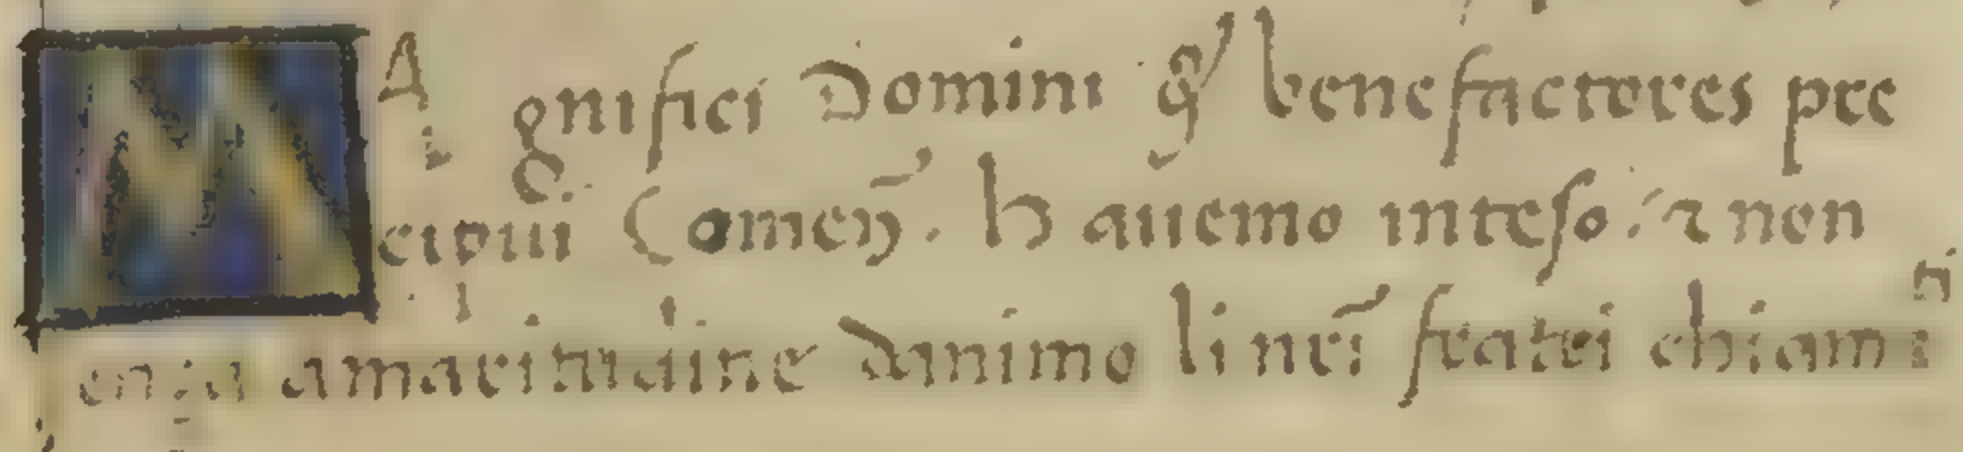 MAgnifici Domini & benefactores pre
cipui Comen̄. Hauemo inteso: & non
senza amaritudine danimo li nr̄i fratri chiam